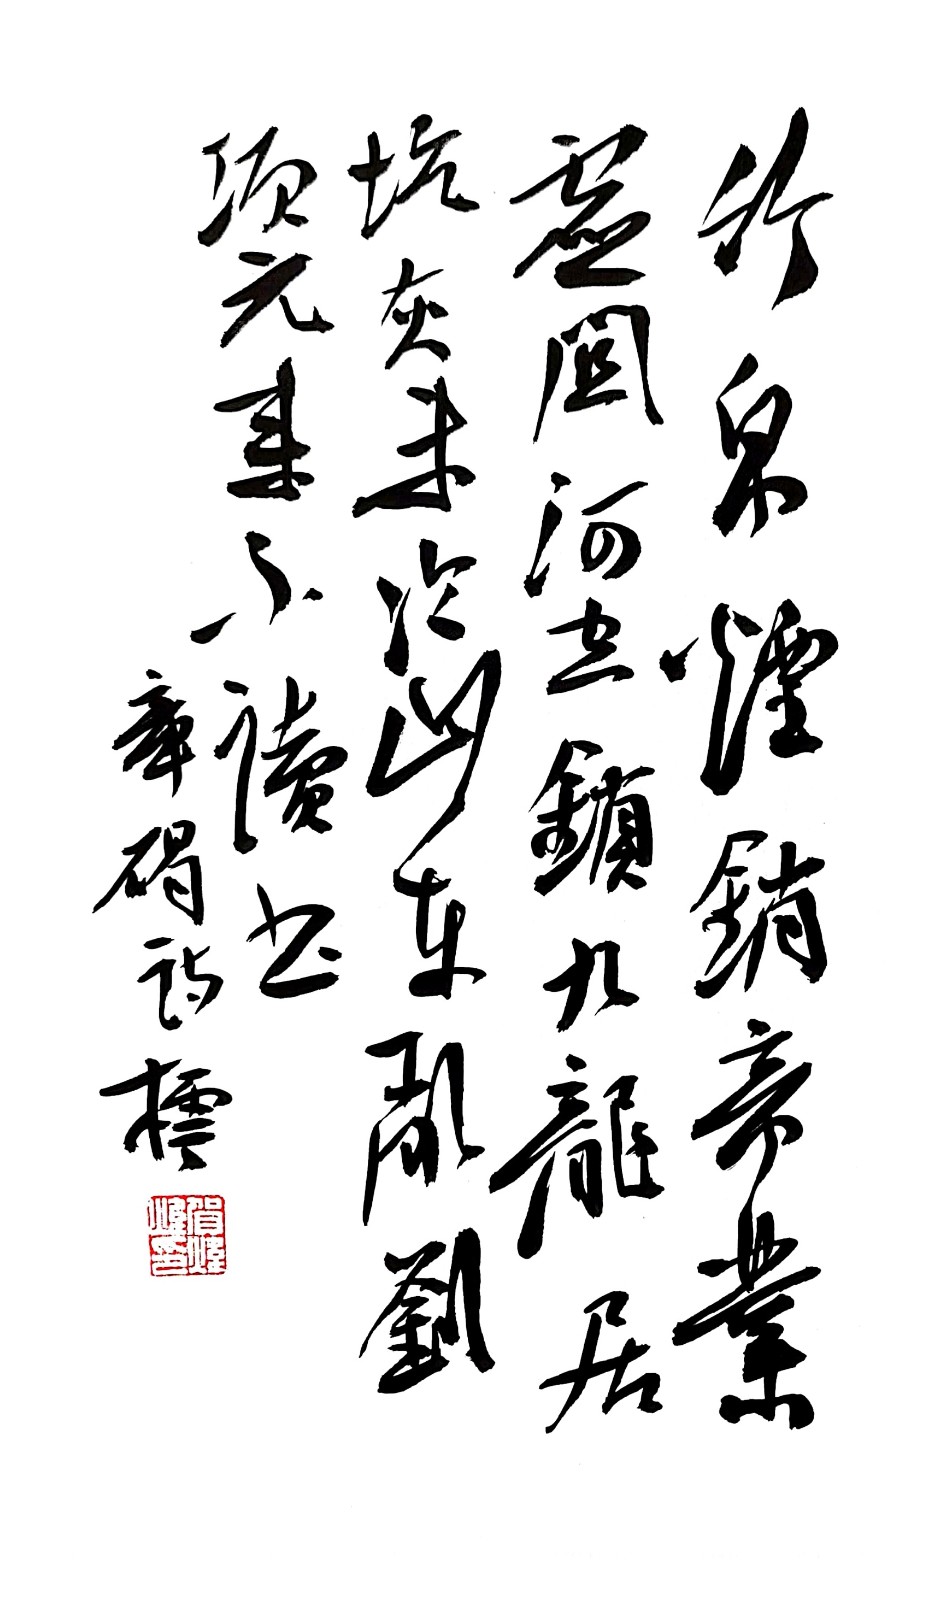 竹帛煙銷帝業
虛關河空鎖九龍居
坑灰未冷山東亂劉
項元來不讀書
章碣詩橒